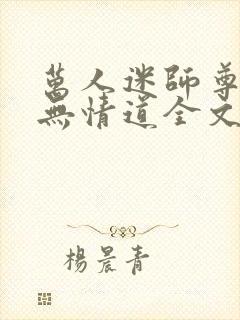 萬人迷師尊
無情道全文
楊晨青